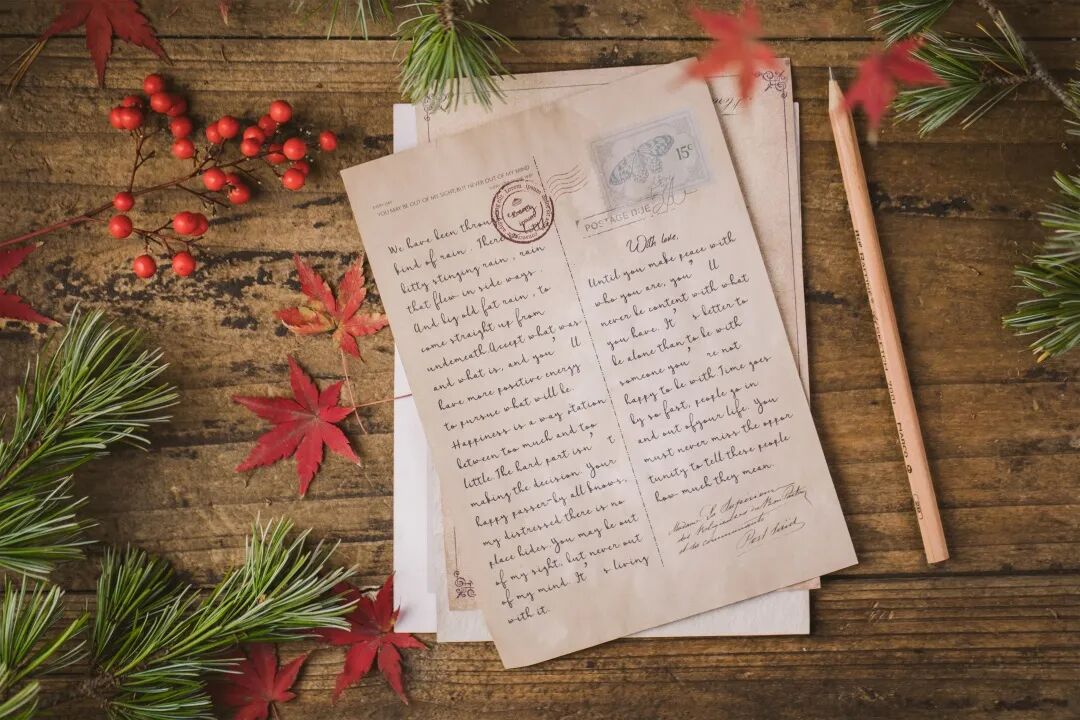 YOU MAY BE OUT OF MY SIGHT, BUT NEVER OUT OF MY MIND
We have been throu
kind of rain. There little
bitty stinging rain, rain
that flew in side ways.
And big old fat rain, to
come straight up from
underneath.Accept what was
and what is, and you' ll
have more positive energy
to pursue what will be.
Happiness is a way station
between too much and too
little.The hard part isn' t
making the decision. Your
happy passer-by all knows,
my distressed there is no
place hides. You may be out
of my sight, but never out
of my mind. It' s living
with it.
Lorem ipsum
15c
POSTAGE DUE
With love,
Until you make peace with
who you are, you' ll
never be content with what
you have. It' s better to
be alone than to be with
someone you' re not
happy to be with.Time goes
by so fast, people go in
and out ofyour life. You
must never miss the oppor
tunity to tell these people
how much they mean.
Madame La Superieure
des Religieuses du Bon Pasteur
et sa communauté
Port Said